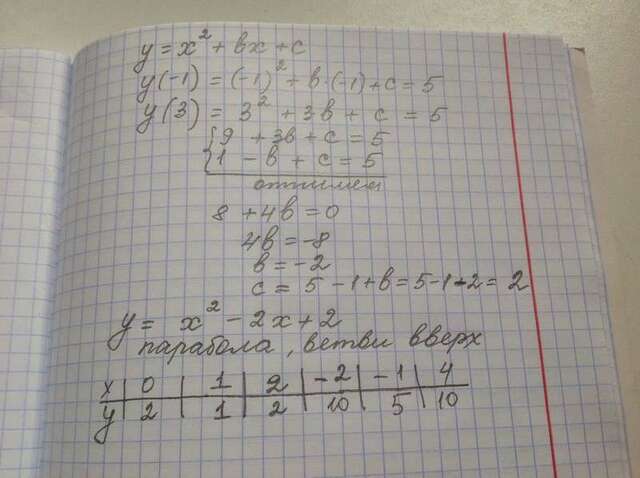 y = x² + вx + c
y(-1) = (-1)² + в·(-1) + c = 5
y(3) = 3² + 3в + c = 5
{9 + 3в + c = 5
{1 - в + c = 5
8 + 4в = 0
4в = -8
в = -2
c = 5 - 1 + в = 5 - 1 - 2 = 2
y = x² - 2x + 2
парабола, ветви вверх
x | 0 | 1 | 2 | -2 | -1 | 4
y | 2 | 1 | 2 | 10 | 5 | 10